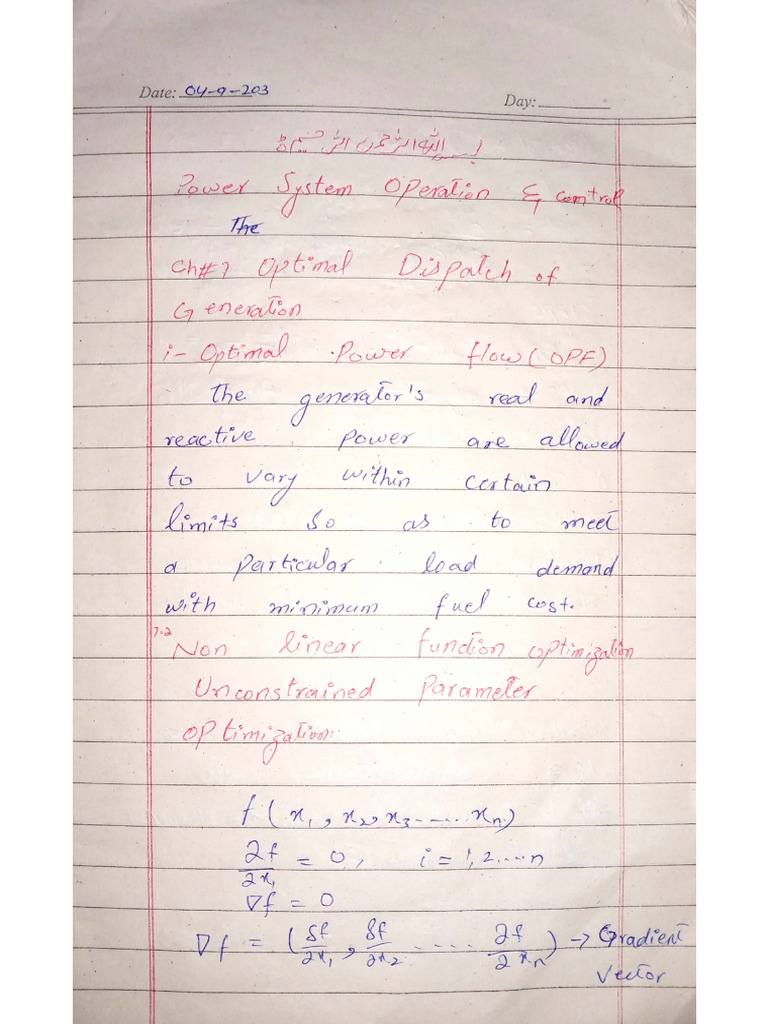 Date: 04-9-203
Day:
بسم اللہ الرحمن الرحیم
Power System Operation & control
The
Ch#7 Optimal Dispatch of
Generation
i- Optimal Power flow (OPF)
The generator's real and
reactive power are allowed
to vary within certain
limits so as to meet
a particular load demand
with minimum fuel cost.
7.2 Non linear function optimization
Unconstrained Parameter
optimization:
f(x₁, x₂, x₃ ..... xₙ)
∂f/∂x₁ = 0, i = 1, 2 .... n
∇f = 0
∇f = (δf/∂x₁, δf/∂x₂ ..... ∂f/∂xₙ) → Gradient
Vector